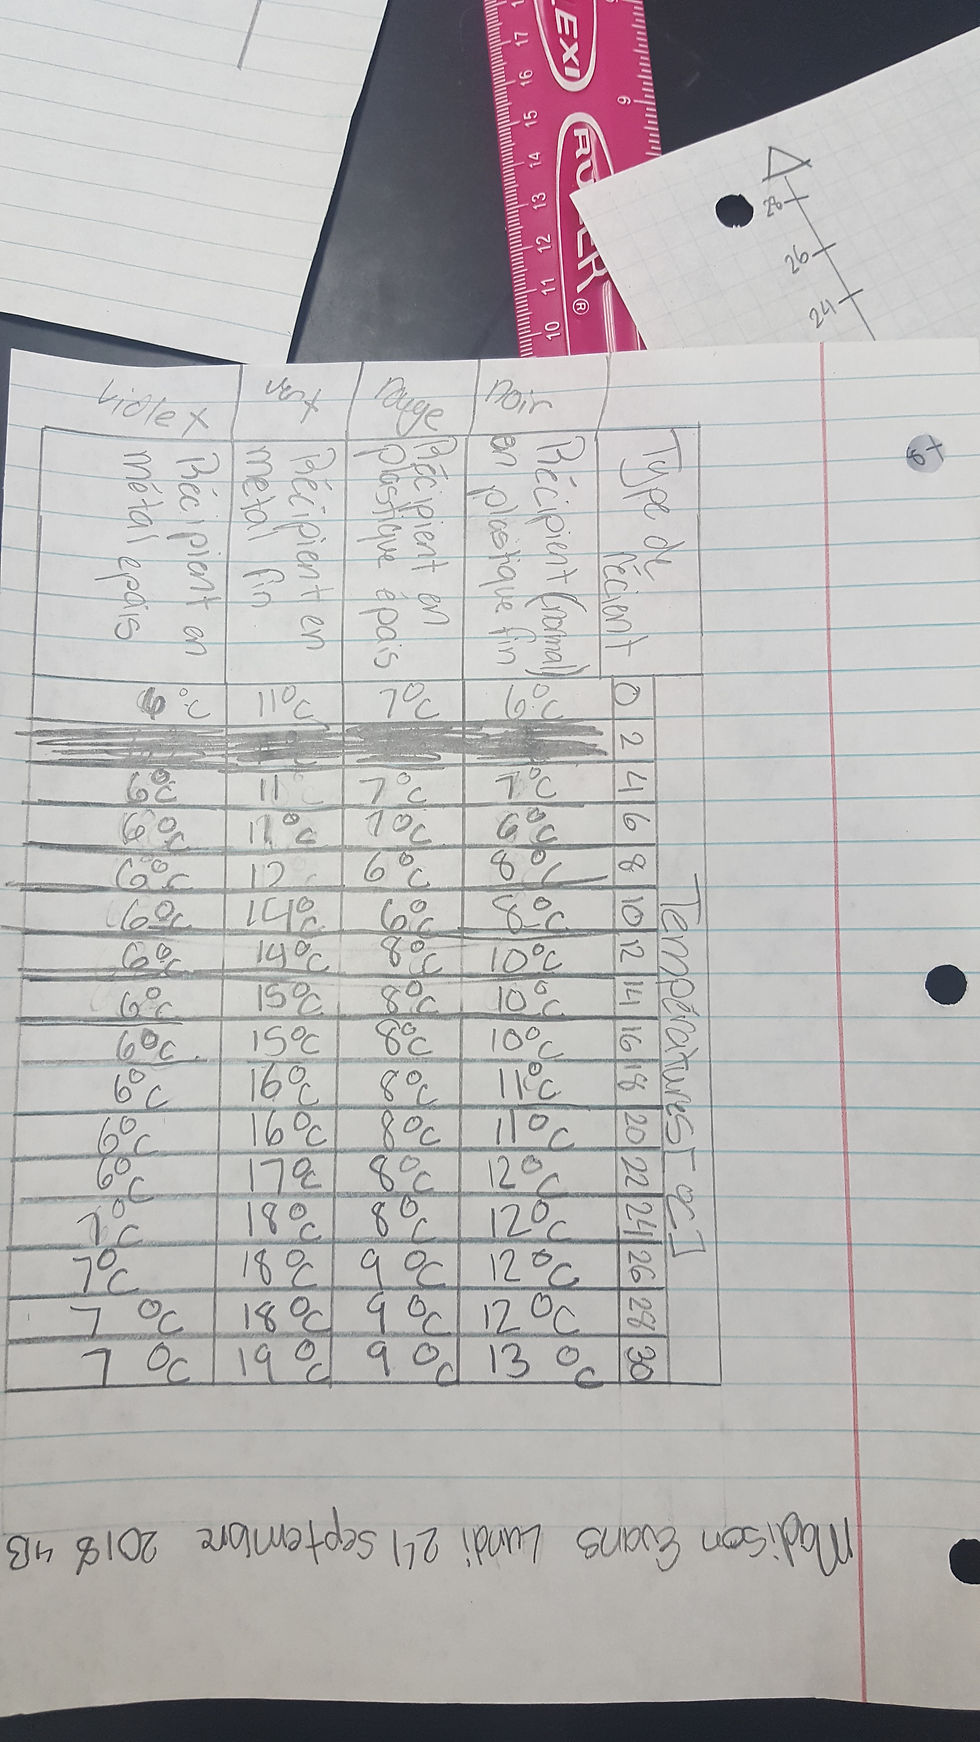 Madison Evans Lundi 24 septembre 2018 4B
Type de récient
Températures [°C]
0 2 4 6 8 10 12 14 16 18 20 22 24 26 28 30
noir
Récipient (normal) en plastique fin
6°C 7°C 6°C 8°C 8°C 10°C 10°C 10°C 11°C 11°C 12°C 12°C 12°C 12°C 13°C
rouge
Récipient en plastique épais
7°C 7°C 7°C 6°C 6°C 8°C 8°C 8°C 8°C 8°C 8°C 8°C 9°C 9°C 9°C
Récipient en métal fin
11°C 11 11°C 12 14°C 14°C 15°C 15°C 16°C 16°C 17°C 18°C 18°C 18°C 19°C
Récipient en métal epais
°C 6°C 6°C 6°C 6°C 6°C 6°C 6°C 6°C 6°C 6°C 7°C 7°C 7°C 7°C
LEXI
RULER®
17 16 15 14 13 12 11 10
9
28 26 24